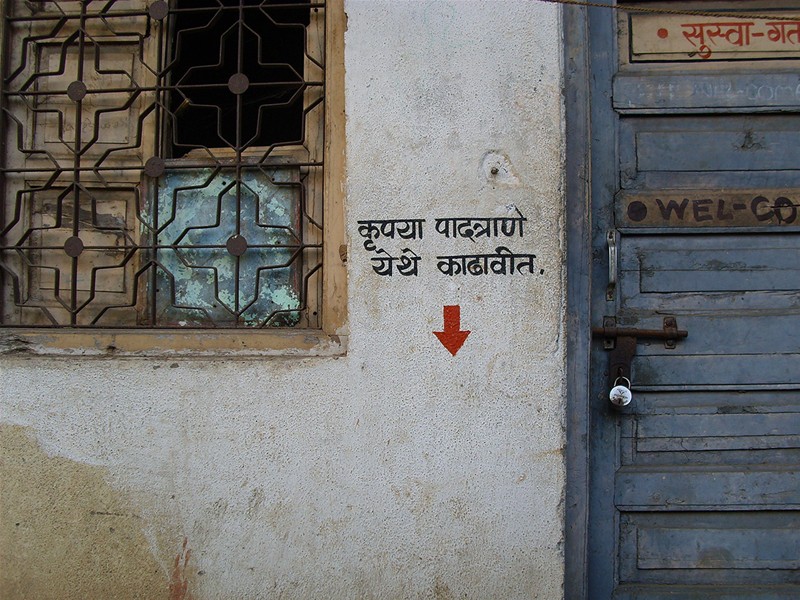 • सुस्वा-गत
WEL-CO
कृपया पादत्राणे
येथे काढावीत.